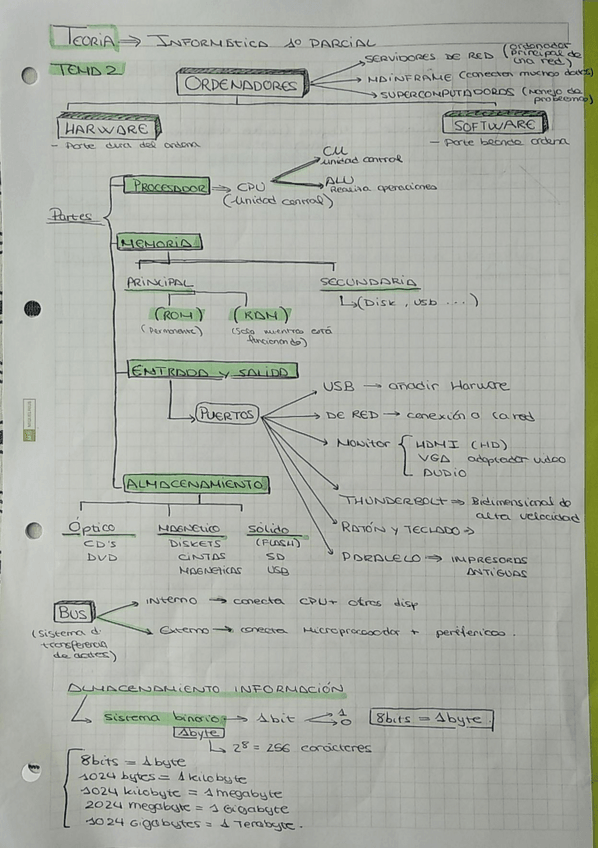 TEORÍA ⇒ INFORMÁTICA 1º PARCIAL
TEMA 2
ORDENADORES
SERVIDORES DE RED (ordenador principal de una red)
MAINFRAME (conectan muchos datos)
SUPERCOMPUTADORES (Manejo de problemas)
HARWARE
- Parte dura del ordena
SOFTWARE
- Parte blanda ordena
Partes
PROCESADOR → CPU
(-Unidad control)
CU
unidad control
ALU
Realiza operaciones
MEMORIA
PRINCIPAL
SECUNDARIA
(ROM) (RAM)
(Permanente)
(Solo mientras está funcionando)
(Disk, usb ...)
ENTRADA Y SALIDA
PUERTOS
USB → añadir Harware
DE RED → conexión a la red
MONITOR
HDMI (HD)
VGA adaptador video
AUDIO
THUNDERBOLT ⇒ Bidimensional de alta velocidad
RATÓN Y TECLADO →
PARALELO ⇒ IMPRESORAS ANTIGUAS
ALMACENAMIENTO
Óptico
CD'S
DVD
MAGNETICO
DISKETS
CINTAS
MAGNETICAS
Sólido
(FLASH)
SD
USB
BUS
(Sistema d
transferencia
de)
Interno → conecta CPU + otros disp
Externo → conecta Microprocesador + perifericos.
ALMACENAMIENTO INFORMACIÓN
Sistema binario → 1bit
1
0
8bits = 1byte.
1byte
2⁸ = 256 carácteres
8bits = 1byte
1024 bytes = 1 kilobyte
1024 kilobyte = 1 megabyte
2024 megabyte = 1 Gigabyte
1024 Gigabytes = 1 Terabyte.